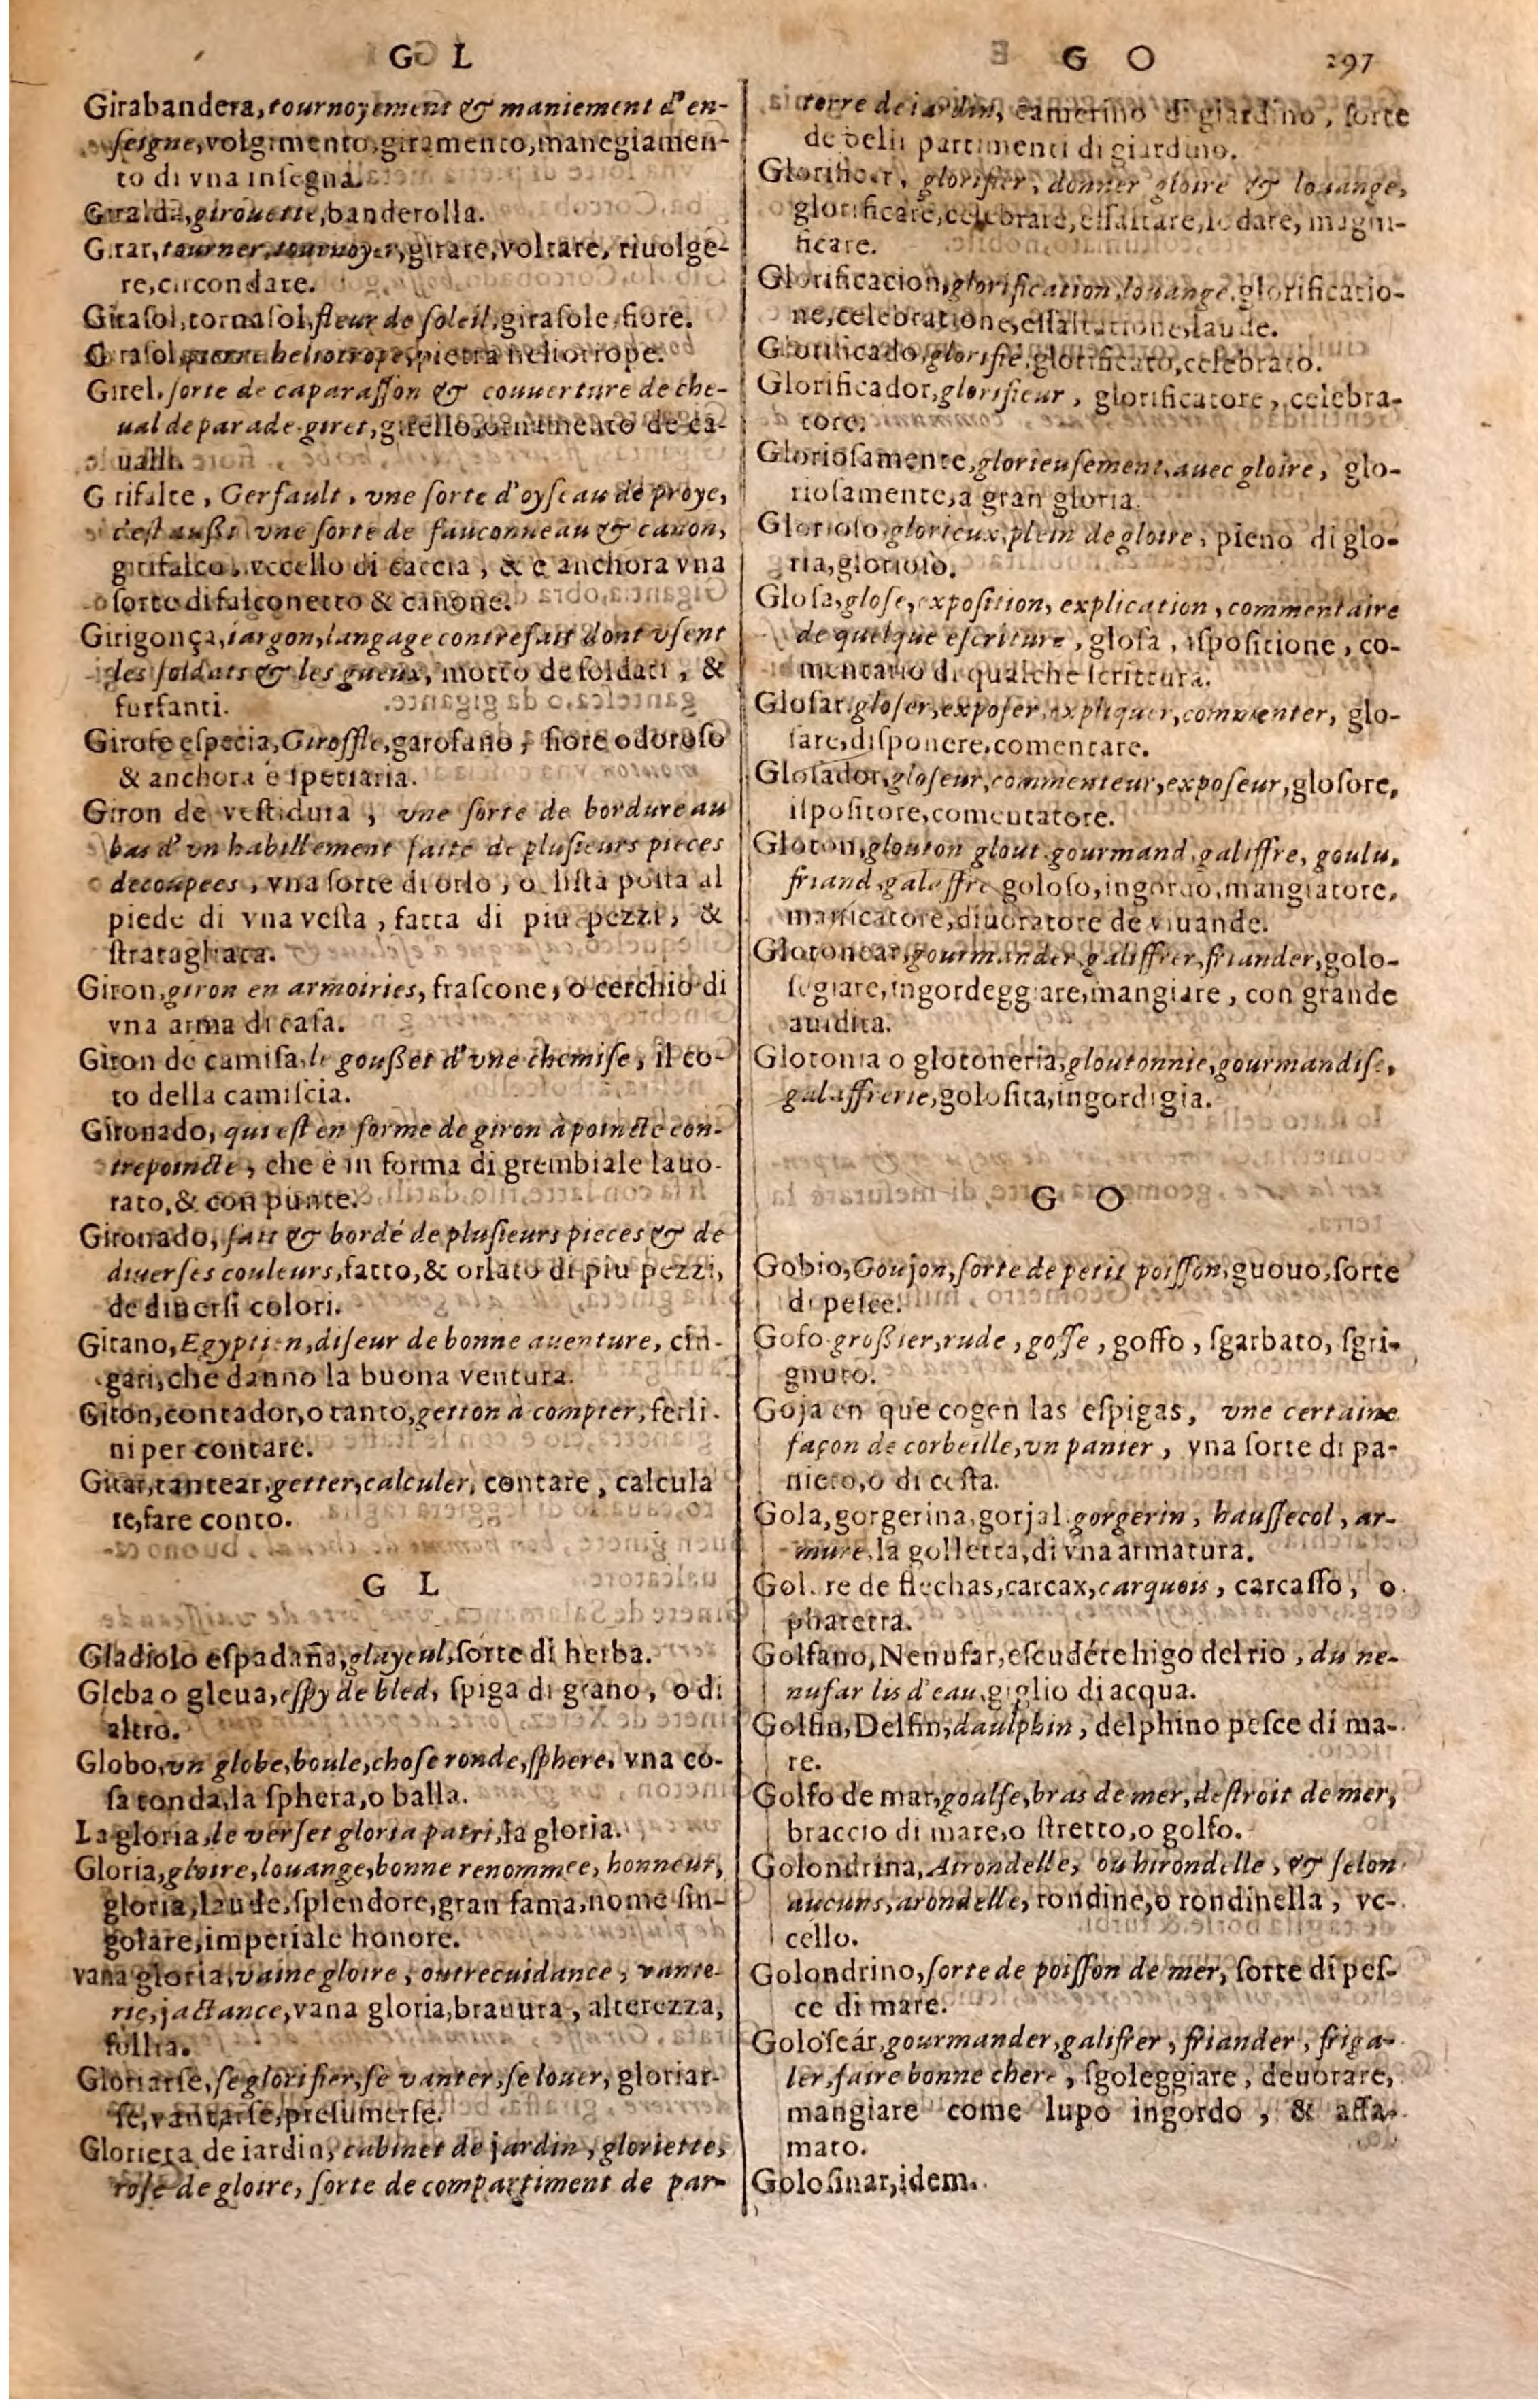 G L
Girabandera, tournoyement & maniement d'en-
ſeigne, volgimento, giramento, manegiamen-
to di vna inſegna.
Giralda, girouette, banderolla.
Girar, tourner, tournoyer, girare, voltare, riuolge-
re, circondare.
Giraſol, tornaſol, fleur de ſoleil, giraſole fiore.
Giraſol, pierre heliotrope, pietra heliotrope.
Girel, ſorte de caparaſſon & couuerture de che-
ual de parade, giret, girello, ornamento de ca-
ualli.
Girifalte, Gerfault, vne ſorte d'oyſeau de proye,
c'eſt außi vne ſorte de fauconneau & canon,
girifalco, vccello di caccia, & e anchora vna
ſorte di falconetto & canone.
Girigonça, iargon, langage contrefait dont vſent
les ſoldats & les gueux, motto de ſoldati, &
furfanti.
Girofe eſpecia, Giroffle, garofano, fiore odoroſo
& anchora è ſpetiaria.
Giron de veſtidura, vne ſorte de bordure au
bas d'vn habillement faite de pluſieurs pieces
decoupees, vna ſorte di orlo, o liſta poſta al
piede di vna veſta, fatta di piu pezzi, &
ſtratagliata.
Giron, giron en armoiries, fraſcone, o cerchio di
vna arma di caſa.
Giron de camiſa, le goußet d'vne chemiſe, il co-
to della camiſcia.
Gironado, qui eſt en forme de giron à poincte con-
trepoincte, che è in forma di grembiale lauo-
rato, & con punte.
Gironado, fait & bordé de pluſieurs pieces & de
diuerſes couleurs, fatto, & orlato di piu pezzi,
de diuerſi colori.
Gitano, Egyptien, diſeur de bonne auenture, cin-
gari, che danno la buona ventura.
Giton, contador, o tanto, getton à compter, ferli-
ni per contare.
Gitar, tantear, getter, calculer, contare, calcula
re, fare conto.
G L
Gladiolo eſpadaña, glayeul, ſorte di herba.
Gleba o gleua, eſpy de bled, ſpiga di grano, o di
altro.
Globo, vn globe, boule, choſe ronde, ſphere, vna co-
ſa tonda, la ſphera, o balla.
La gloria, le verſet gloria patri, la gloria.
Gloria, gloire, louange, bonne renommee, honneur,
gloria, laude, ſplendore, gran fama, nome ſin-
golare, imperiale honore.
vana gloria, vaine gloire, outrecuidance, vante-
rie, jactance, vana gloria, brauura, alterezza,
follia.
Gloriarſe, ſe glorifier, ſe vanter, ſe louer, gloriar-
ſe, vantarſe, preſumerſe.
Glorieta de iardin, cabinet de jardin, gloriette,
roſe de gloire, ſorte de compartiment de par-
G O 297
terre de iardin, camerino di giardino, ſorte
de belli partimenti di giardino.
Glorificar, glorifier, donner gloire & louange,
glorificare, celebrare, eſſaltare, lodare, magni-
ficare.
Glorificacion, glorification, louange, glorificatio-
ne, celebratione, eſſaltatione, laude.
Glorificado, glorifié, glorificato, celebrato.
Glorificador, glorifieur, glorificatore, celebra-
tore.
Glorioſamente, glorieuſement, auec gloire, glo-
rioſamente, a gran gloria.
Glorioſo, glorieux, plein de gloire, pieno di glo-
ria, glorioſo.
Gloſa, gloſe, expoſition, explication, commentaire
de quelque eſcriture, gloſa, iſpoſitione, co-
mentario di qualche ſcrittura.
Gloſar, gloſer, expoſer, expliquer, commenter, glo-
ſare, diſponere, comentare.
Gloſador, gloſeur, commenteur, expoſeur, gloſore,
iſpoſitore, comentatore.
Gloton, glouton glout, gourmand, galiffre, goulu,
friand, galaffre goloſo, ingordo, mangiatore,
maſticatore, diuoratore de viuande.
Glotonear, gourmander, galiffrer, friander, golo-
ſegiare, ingordeggiare, mangiare, con grande
auidita.
Glotonia o glotoneria, gloutonnie, gourmandiſe,
galaffrerie, goloſita, ingordigia.
G O
Gobio, Goujon, ſorte de petit poiſſon, guouo, ſorte
di peſce.
Gofo, großier, rude, goffe, goffo, ſgarbato, ſgri-
gnuto.
Goja en que cogen las eſpigas, vne certaine
façon de corbeille, vn panier, vna ſorte di pa-
niero, o di ceſta.
Gola, gorgerina, gorjal, gorgerin, hauſſecol, ar-
mure, la golletta, di vna armatura.
Gol re de flechas, carcax, carquois, carcaſſo, o
pharetra.
Golfano, Nenufar, eſcudéte higo del rio, du ne-
nufar lis d'eau, giglio di acqua.
Golfin, Delfin, daulphin, delphino peſce di ma-
re.
Golfo de mar, goulfe, bras de mer, deſtroit de mer,
braccio di mare, o ſtretto, o golfo.
Golondrina, Airondelle, ou hirondelle, & ſelon
aucuns, arondelle, rondine, o rondinella, vc-
cello.
Golondrino, ſorte de poiſſon de mer, ſorte di peſ-
ce di mare.
Goloſeár, gourmander, galifrer, friander, friga-
ler, faire bonne chere, ſgoleggiare, deuorare,
mangiare come lupo ingordo, & affa-
mato.
Goloſinar, idem.